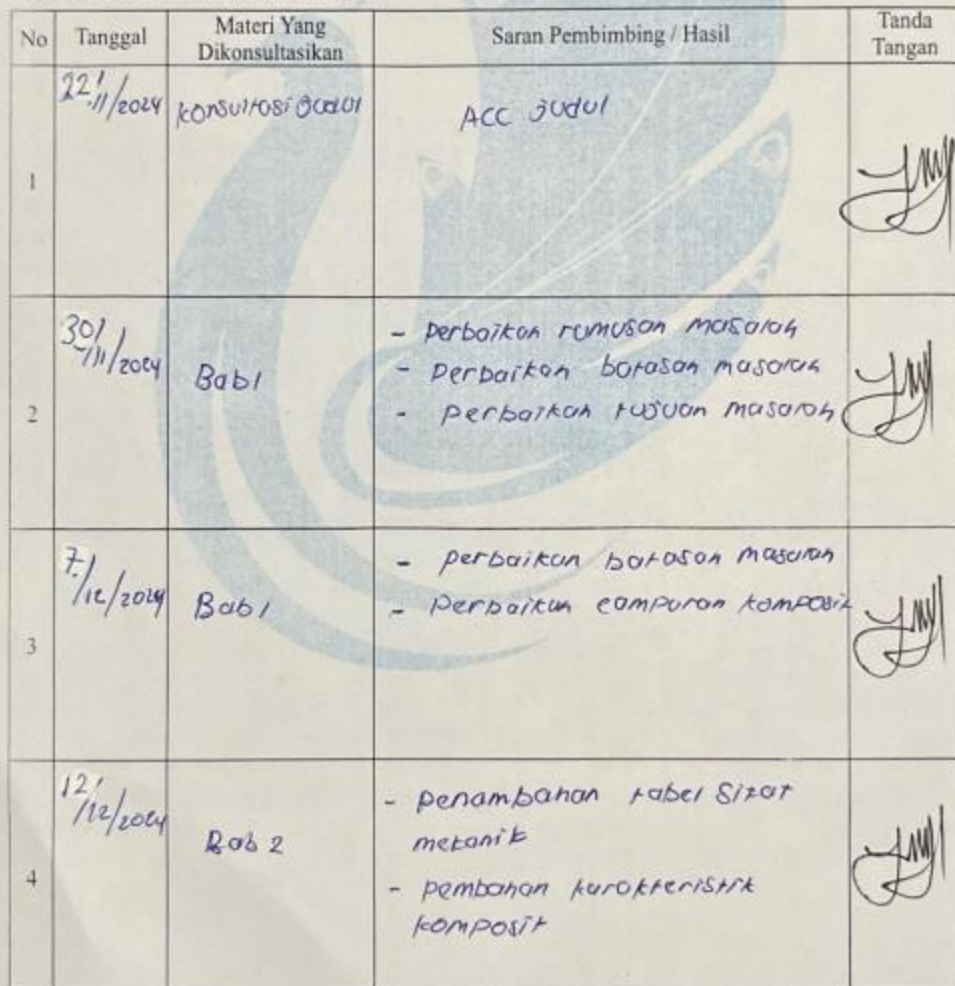 No Tanggal Materi Yang Dikonsultasikan Saran Pembimbing / Hasil Tanda Tangan
1 22/11/2024 Konsultasi Judul ACC Judul
2 30/11/2024 Bab 1 - Perbaikan rumusan masalah
- Perbaikan batasan masalah
- Perbaikan tujuan masalah
3 7/12/2024 Bab 1 - Perbaikan batasan masalah
- Perbaikan campuran komposit
4 12/12/2024 Bab 2 - Penambahan tabel Sifat
mekanik
- pembahan karakteristik
komposit